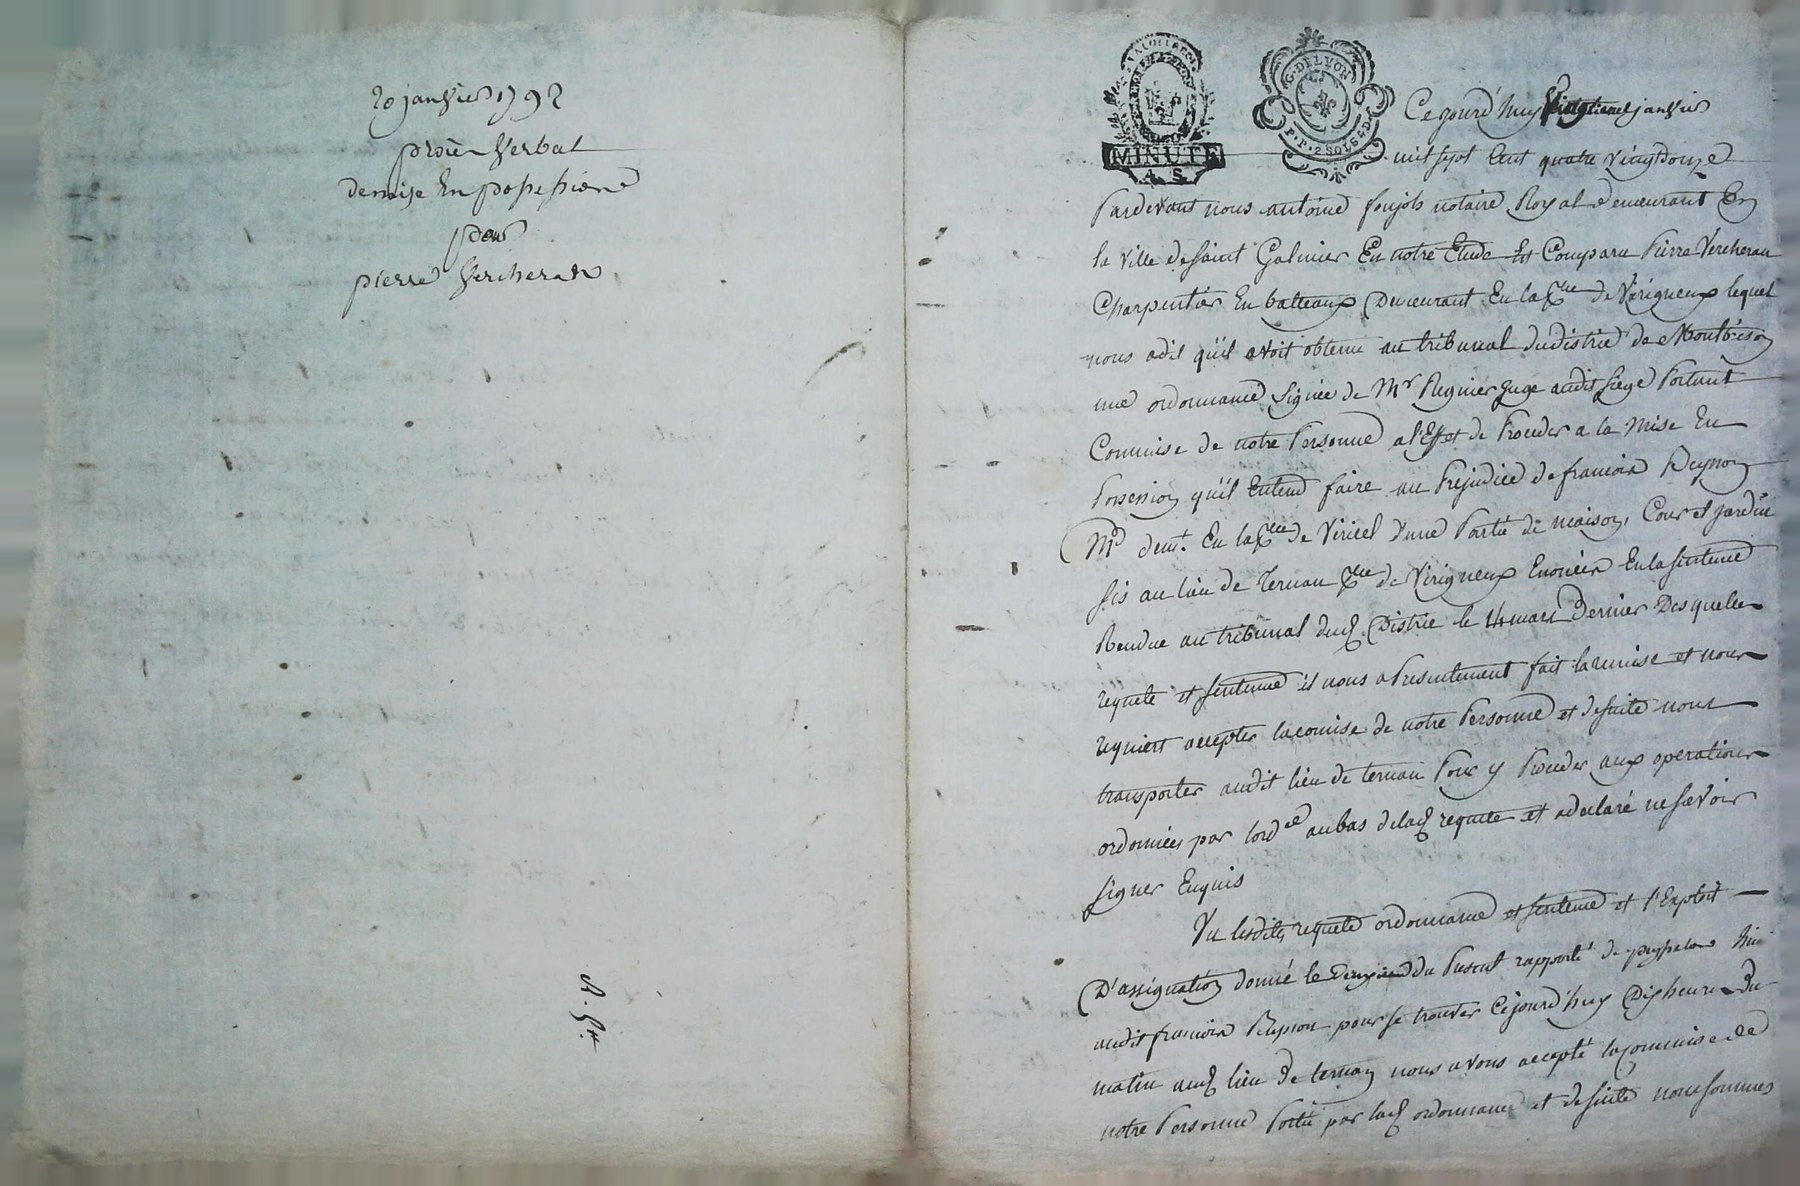 20 janvier 1792
procès verbal
demise En possession
pour
pierre Vercherat
A. Gn
MINUTE
4. S.
G. DE LYON
P. P. 2 SOLS 4 D.
Cejourd'huy vingtieme janvier
mil sept Cent quatre vingt douze
Pardevant nous antoine notaire Royal demeurant En
la ville de saint Galmier En notre Etude Est Comparu Pierre Vercherau
Charpentier En batteaux Demeurant En la Psse de Virigneux lequel
nous adit quïl avoit obtenu au tribunal dudistric de Montbrison
une ordonnance signée de Mr Regnier juge audit siege Portant
Commise de notre Personne a l'Effet de Proceder a la Mise En
Possession quïl Entend faire au Préjudice de francois Reynon
Md demt. En la Psse de Viricel d'une Partie de maison, Cour et jardin
sis au lieu de Ternan Psse de Virigneux Enoncés En la sentence
Rendue au tribunal dud District le 14 mars Dernier Desquelles
requete et sentence il nous a Presentement fait la remise et nous
requiert accepter lacomise de notre Personne et desuite nous
transporter audit lieu de ternan Pour y Proceder aux operations
ordonnées par lordce aubas delad requete et adeclaré ne sçavoir
signer Enquis
Vu lesdits requete ordonnance et sentence et l'Exploit
D'assignation donné le Deuxieme du Present rapporté de
audit francois Reynon pour se trouver Cejourd'huy Dix heures Du
matin aud lieu de ternan nous avons accepté la Commise de
notre Personne Portée par lad ordonnance et desuite nous sommes